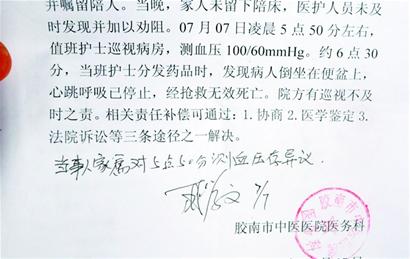 并嘱留陪人。当晚，家人未留下陪床，医护人员未及
时发现并加以劝阻。07 月 07 日凌晨 5 点 50 分左右，
值班护士巡视病房，测血压 100/60mmHg。约 6 点 30
分，当班护士分发药品时，发现病人倒坐在便盆上，
心跳呼吸已停止，经抢救无效死亡。院方有巡视不及
时之责。相关责任补偿可通过：1.协商 2.医学鉴定 3.
法院诉讼等三条途径之一解决。
当事人家属对5点50分测血压存异议.
7/7
胶南市中医医院医务科
胶南市中